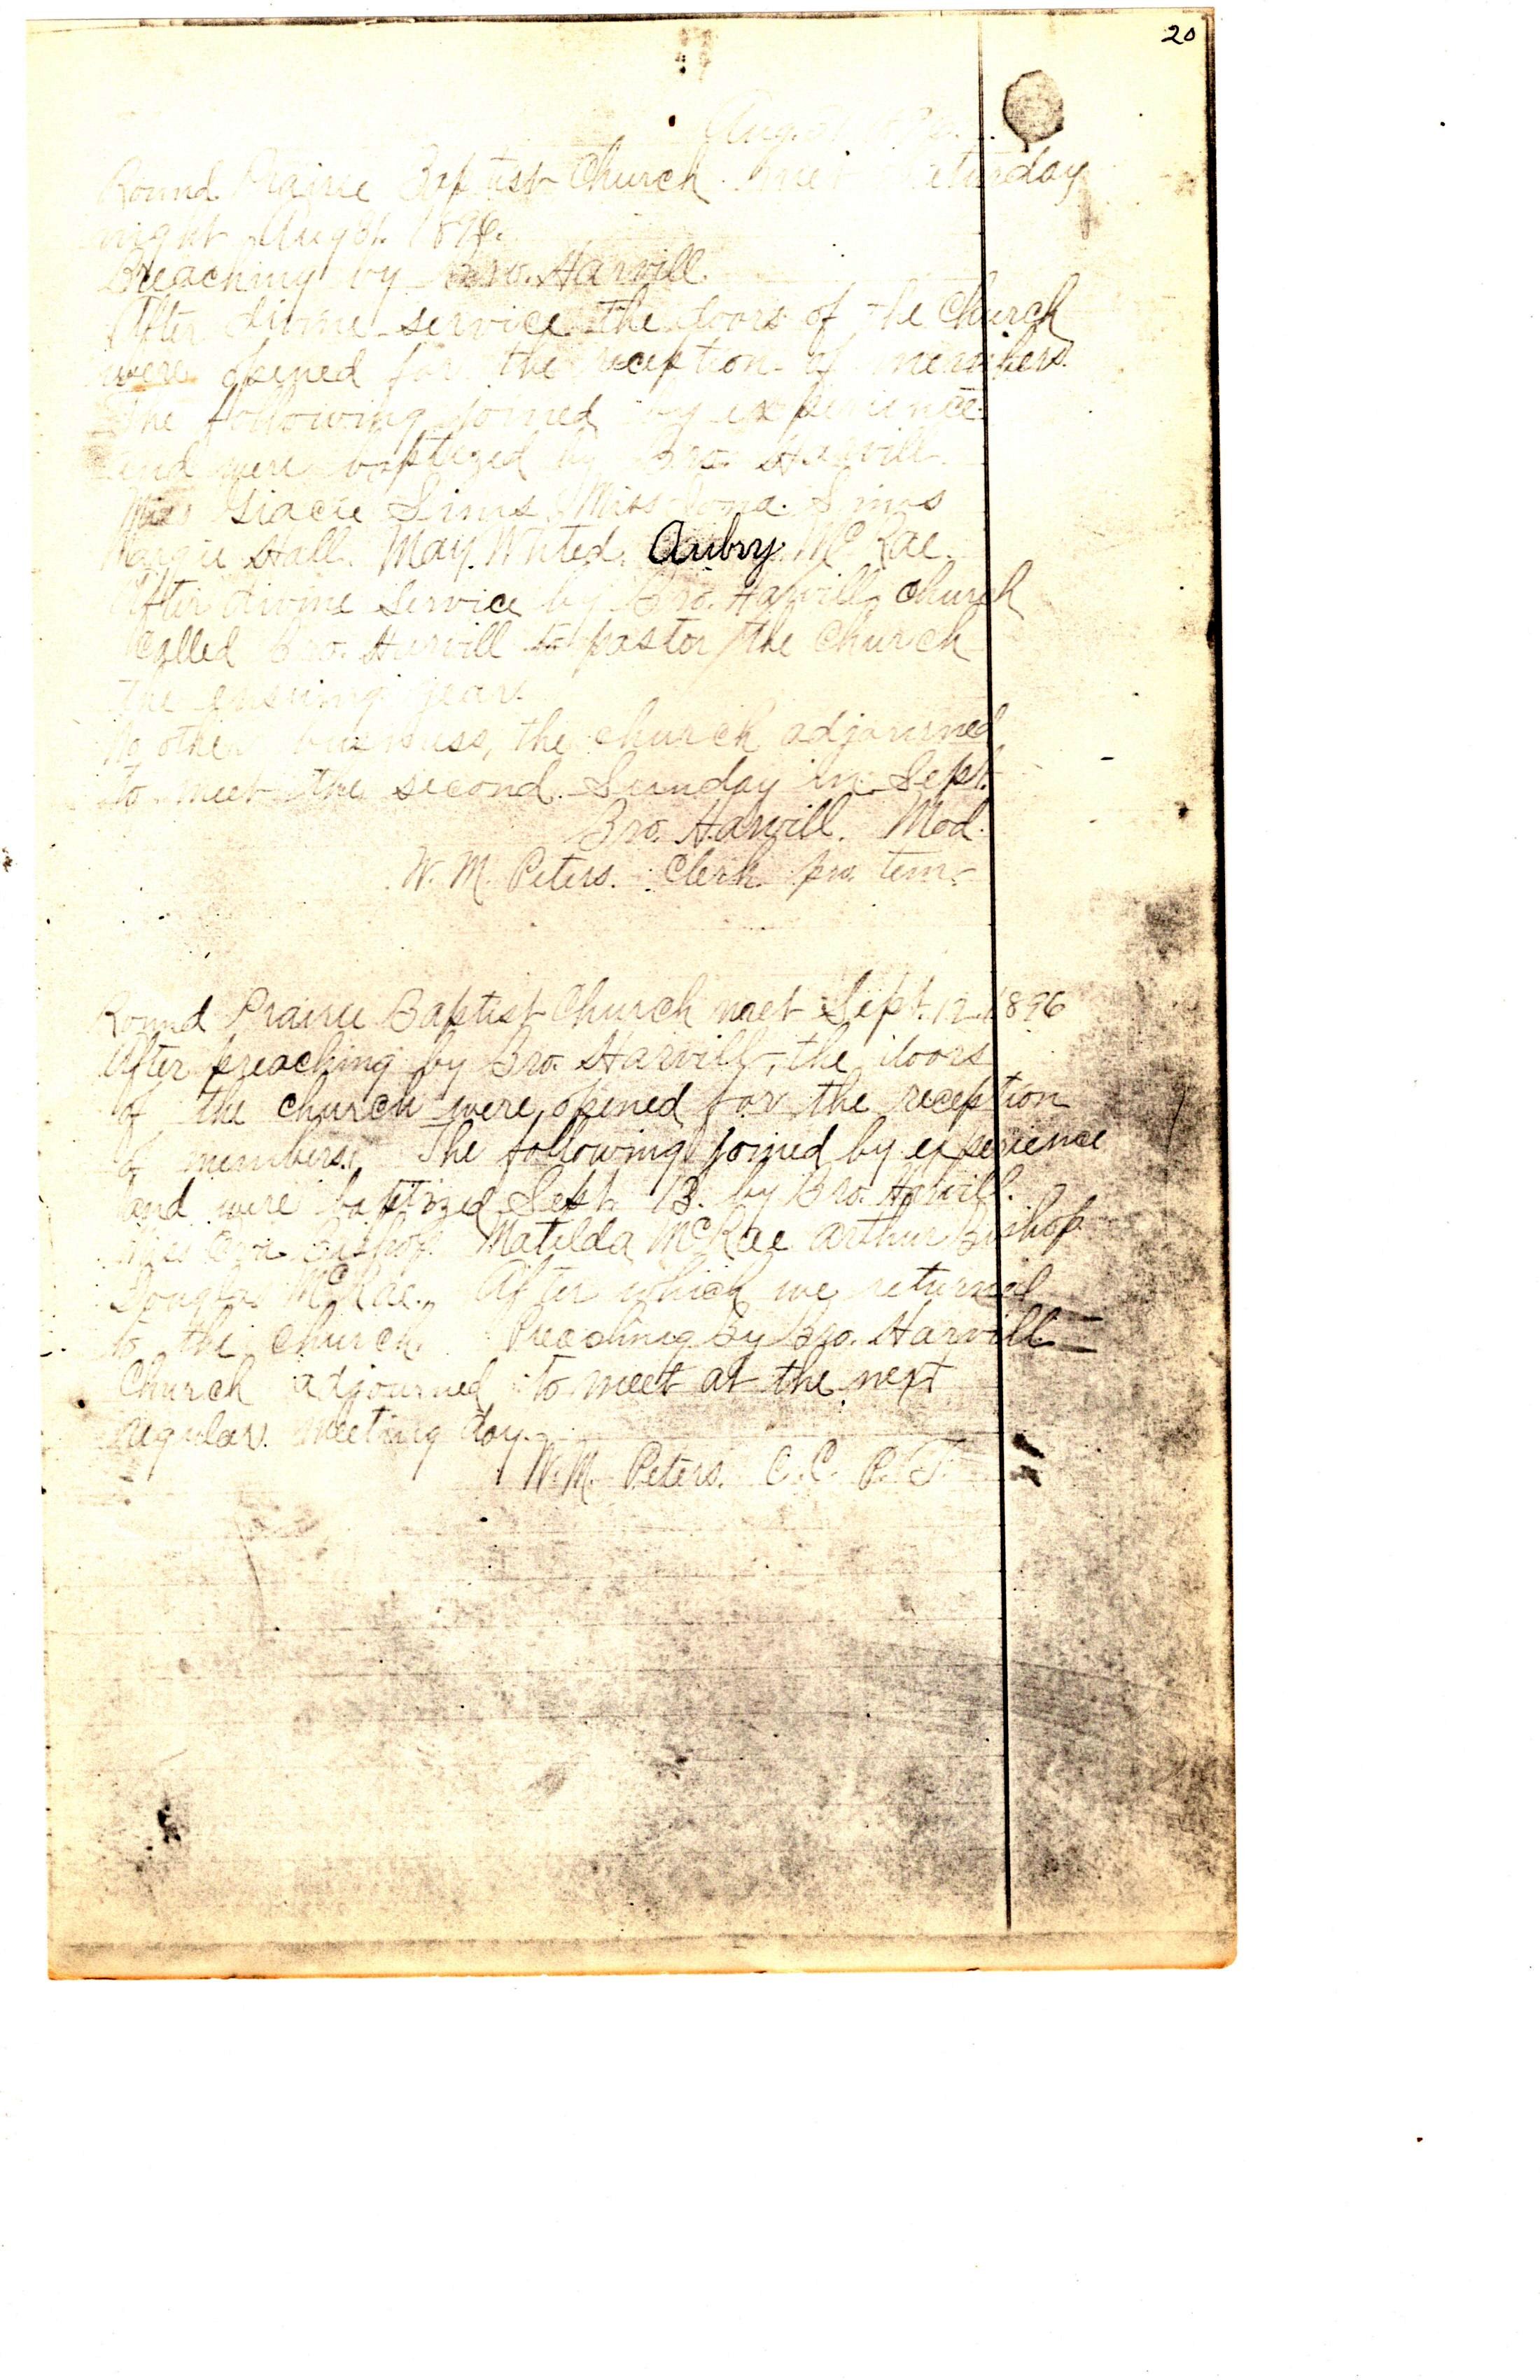 20
Aug.
Round Prairie Baptist Church met Saturday
night Aug 1896.
Preaching by Bro. Harvill.
After divine service the doors of the Church
were opened for the reception of members.
The following joined by experience
and were baptized by Bro. Harvill.
Miss Gracie Sims, Miss Iona Sims
Margie Hall. May Whted. Aubry McRae.
After divine service by Bro. Harvill, church
called Bro. Harvill to pastor the church
the ensuing year.
No other business, the church adjourned
to meet the second Sunday in Sept.
Bro. Harvill. Mod.
W. M. Peters. Clerk pro tem.
Round Prairie Baptist Church met Sept. 12 1896
After preaching by Bro. Harvill, the doors
of the church were opened for the reception
of members. The following joined by experience
and were baptized Sept. 13. by Bro. Harvill.
Miss Bishop. Matilda McRae Arthur Bishop
Douglas McRae. After which we returned
to the church. Preaching By Bro. Harvill
Church adjourned to meet at the next
regular meeting day.
W. M. Peters. C. C. P. T.